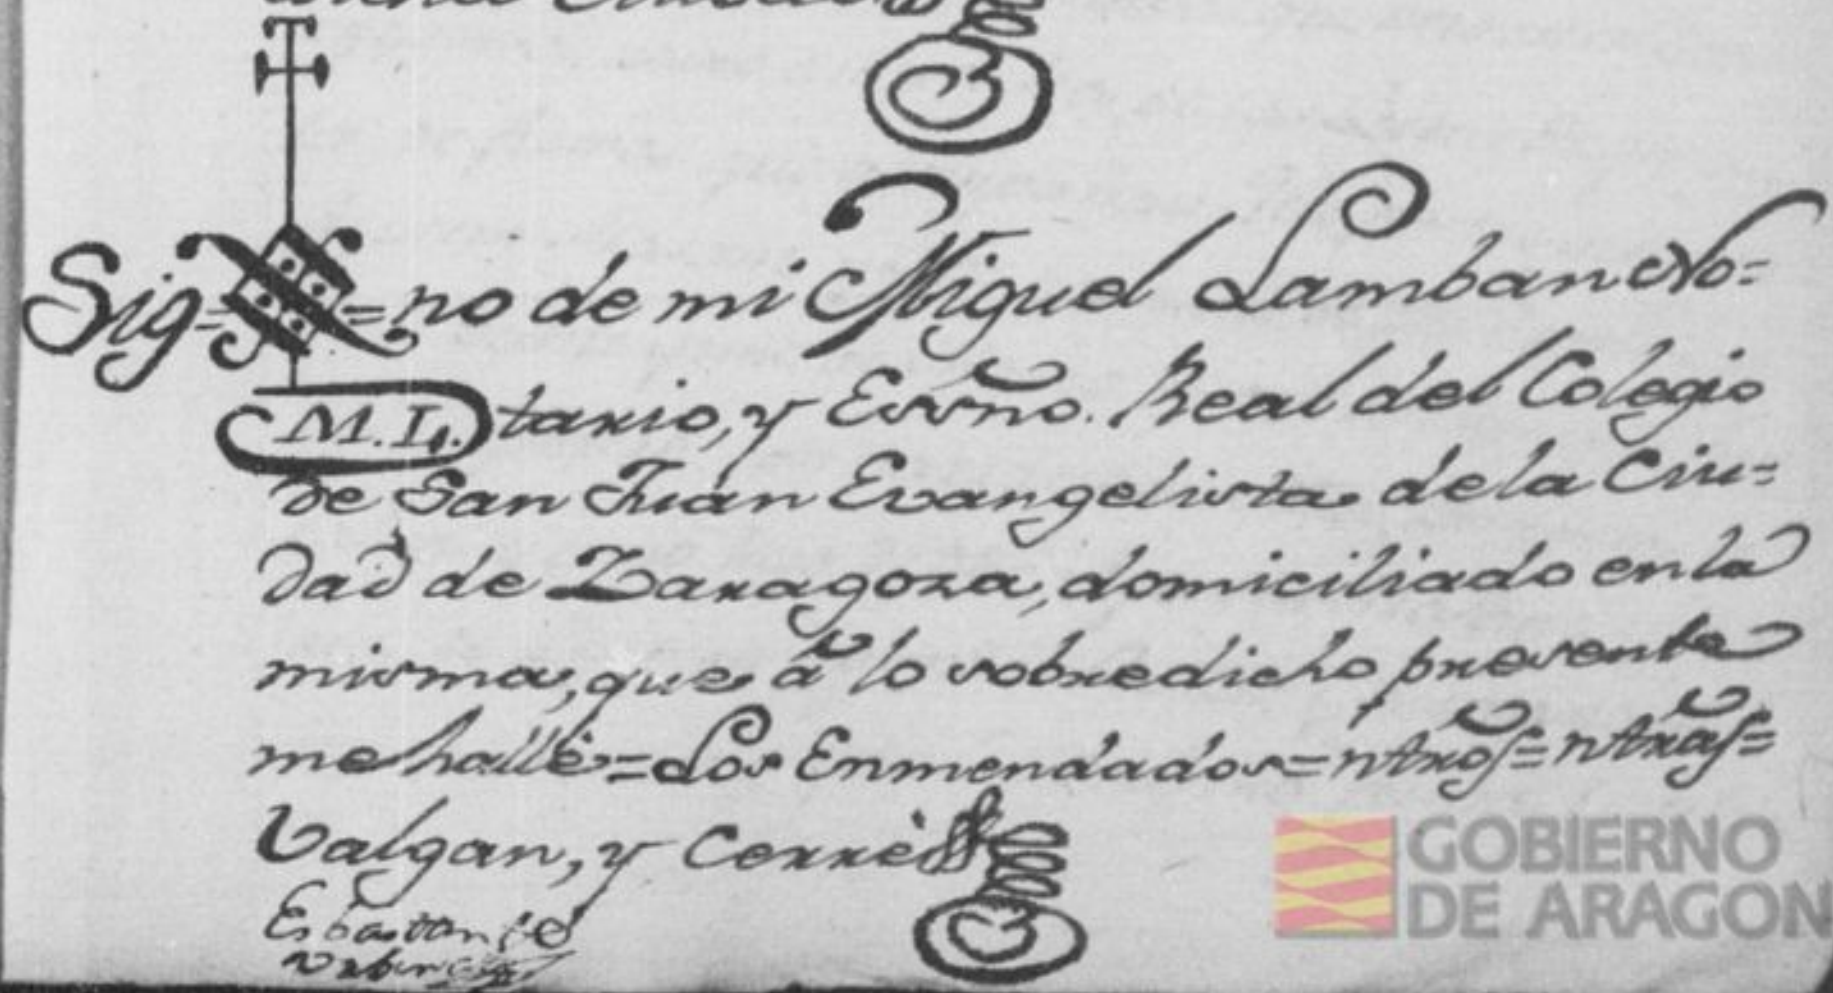 Sig= =no de mi Miguel Lamban No=
M. L. tario, y Essño. Real del Colegio
de San Juan Evangelista de la Ciu=
dad de Zaragoza, domiciliado en la
misma, que â lo sobredicho presente
me hallè = Los Enmendados = ntrõs = ntrãs =
Valgan, y Cerrè
Es bastante
GOBIERNO
DE ARAGON